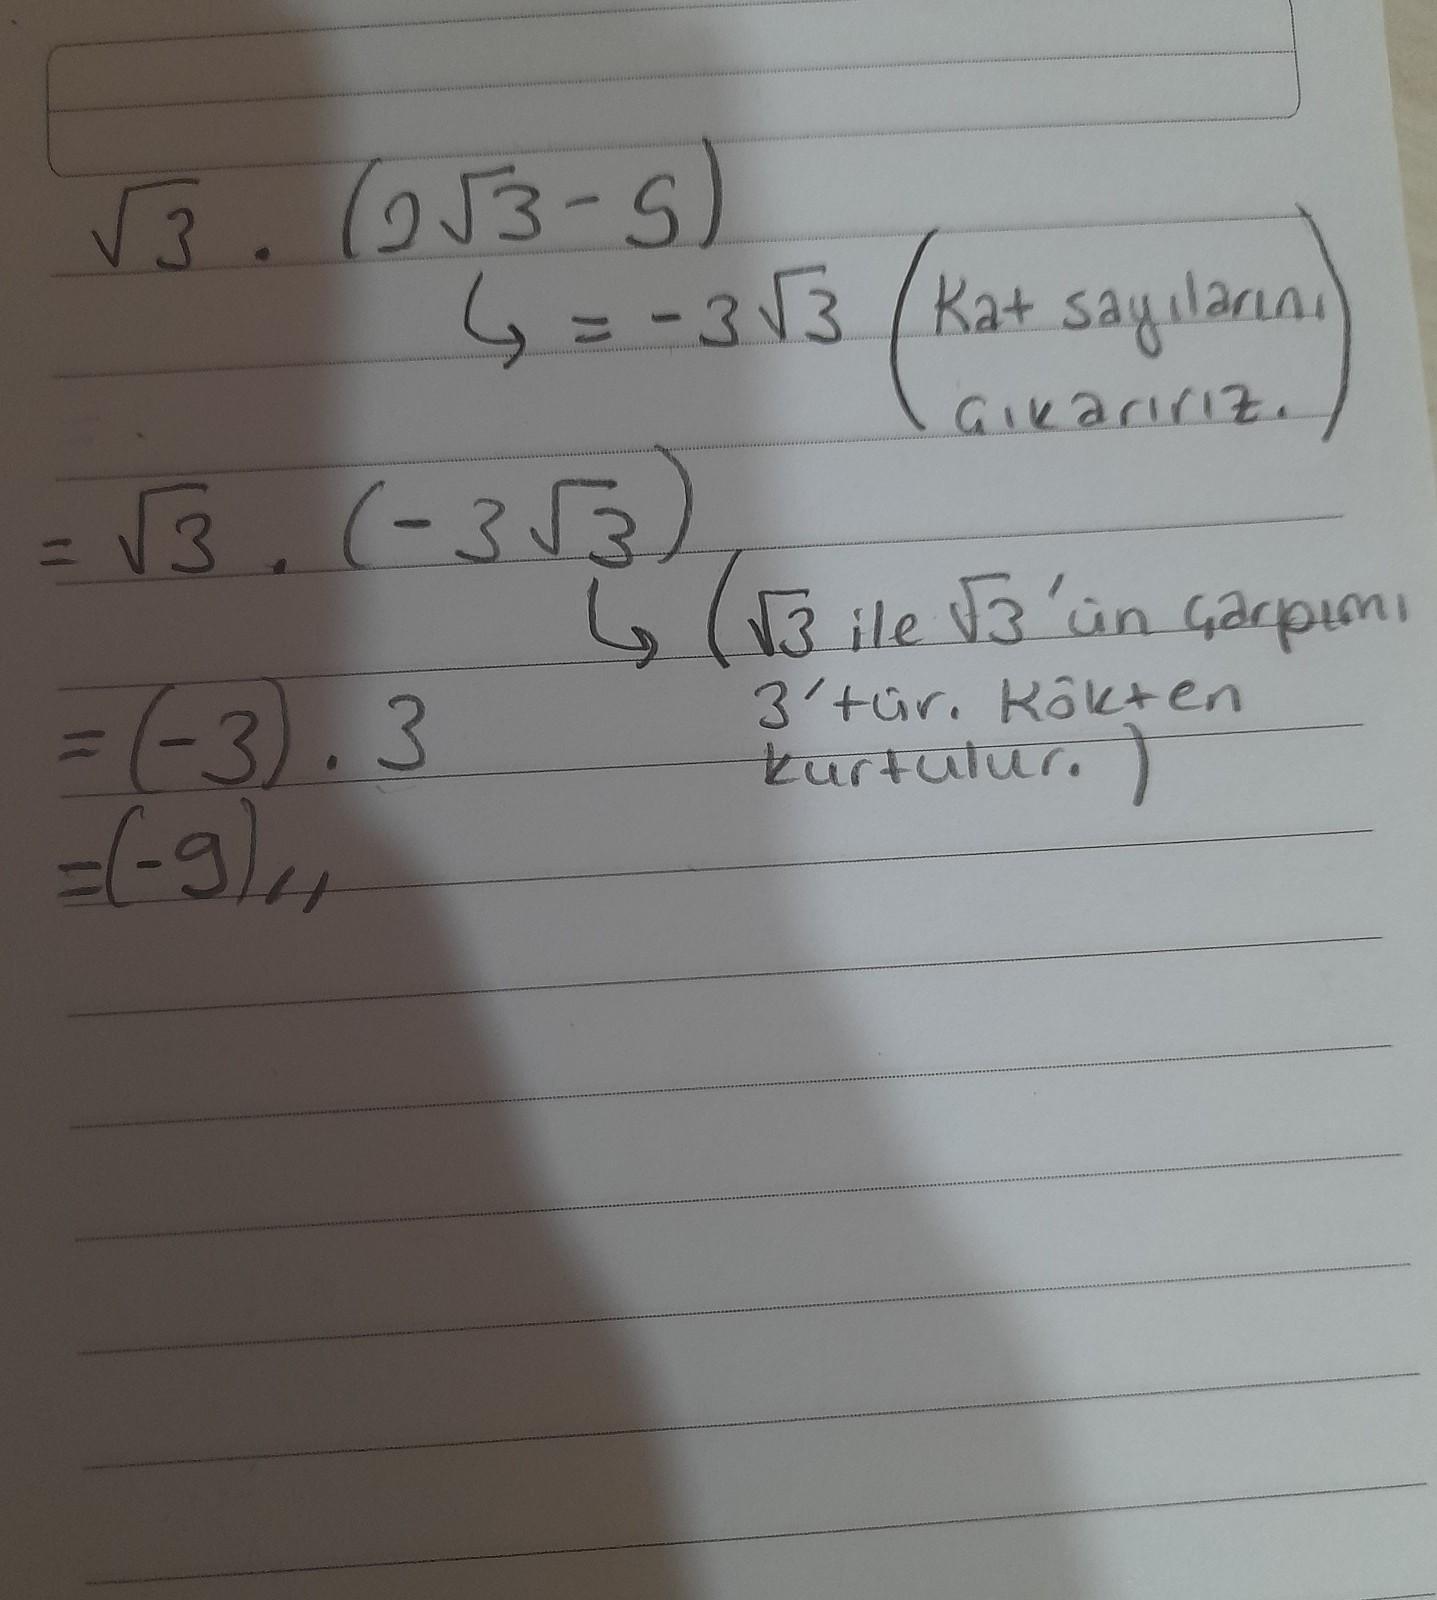 √3 . (2√3 - 5)
= -3√3 (Kat sayılarını
çıkarırız.)
= √3 . (-3√3)
(√3 ile √3'ün çarpımı
3'tür. Kökten
kurtulur.)
= (-3) . 3
= (-9),,